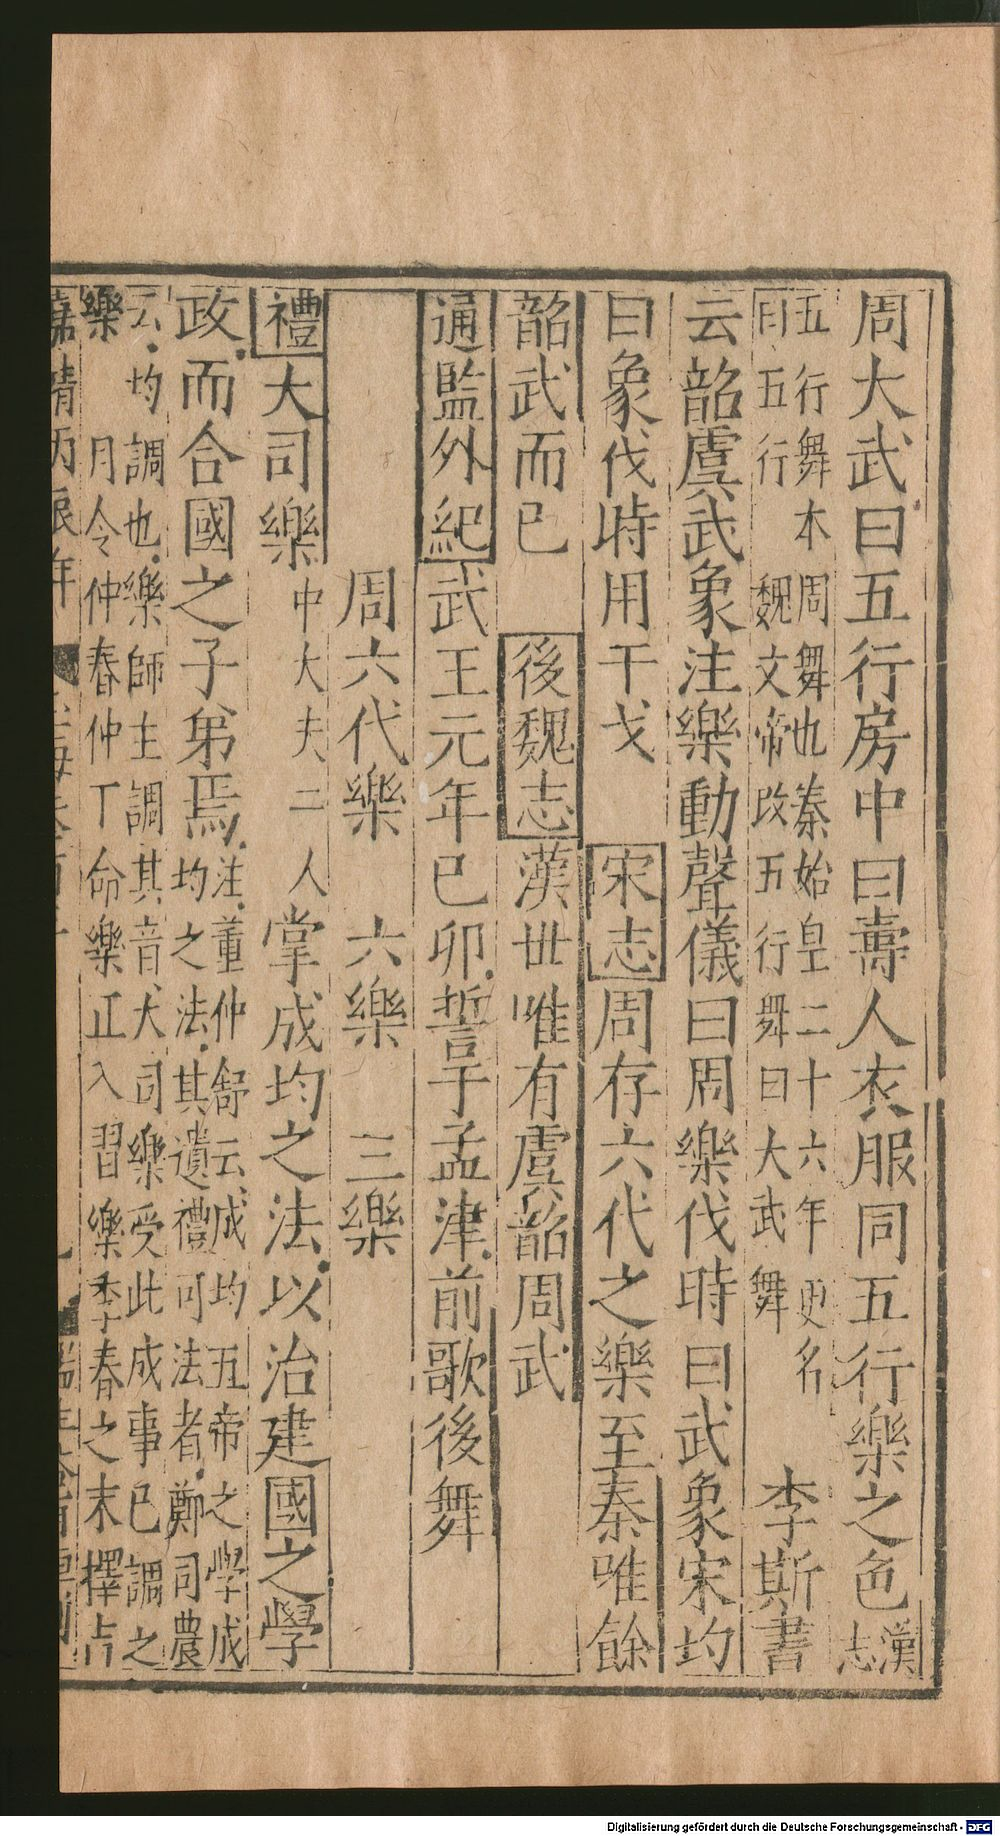 周大武曰五行房中曰壽人衣服同五行樂之色漢志
五行舞本周舞也秦始皇二十六年更名
曰五行魏文帝改五行舞曰大武舞
李斯書
云韶虞武象注樂動聲儀曰周樂伐時曰武象宋均
曰象伐時用干戈 宋志周存六代之樂至秦唯餘
韶武而已 後魏志漢世唯有虞韶周武
通監外紀武王元年已卯誓于孟津前歌後舞
周六代樂 六樂 三樂
禮大司樂中大夫二人掌成均之法以治建國之學
政而合國之子弟焉注董仲舒云成均五帝之學成
均之法其遺禮可法者鄭司農
云均調也樂師主調其音大司樂受此成事已調之
樂 月令仲春仲丁命樂正入習樂季春之末擇吉
嘉靖丙辰年
Digitalisierung gefördert durch die Deutsche Forschungsgemeinschaft - DFG